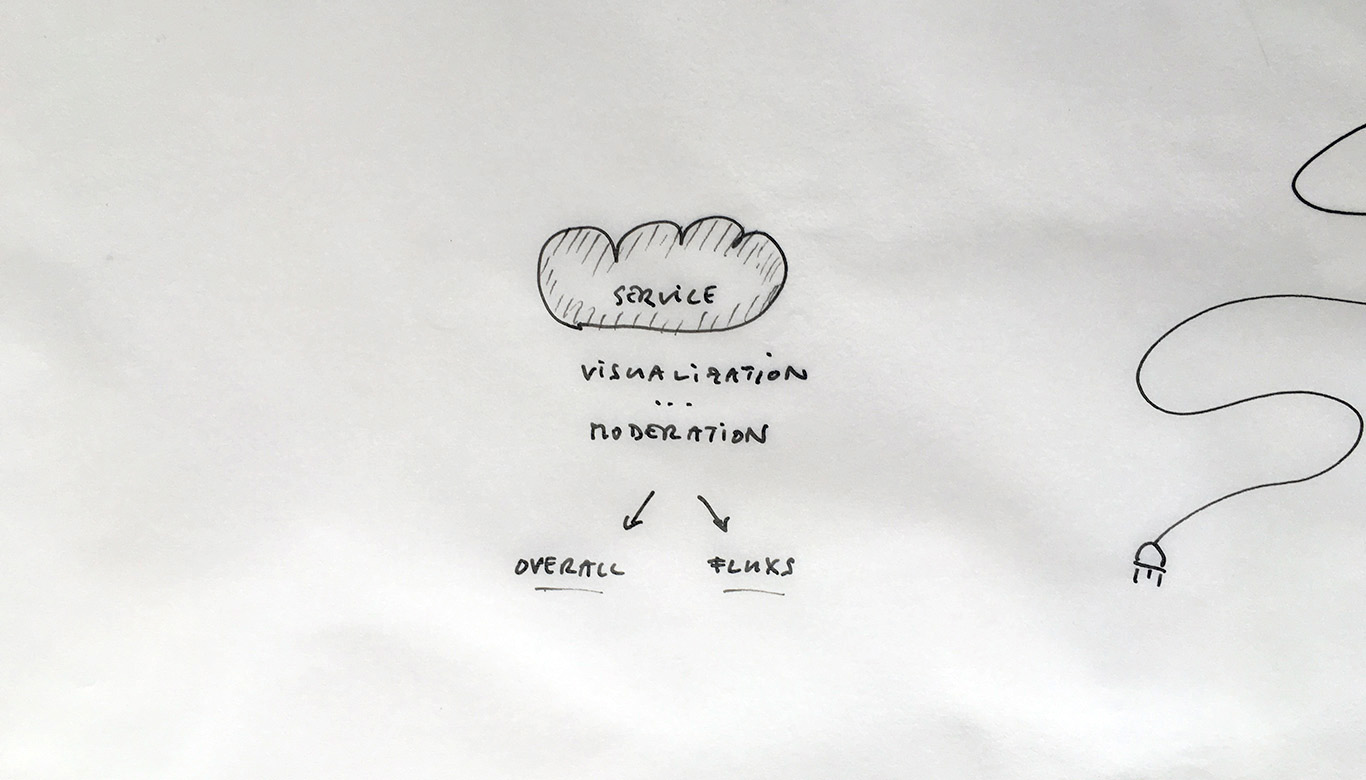 SERVICE
VISUALIZATION
...
MODERATION
OVERALL FLUXS